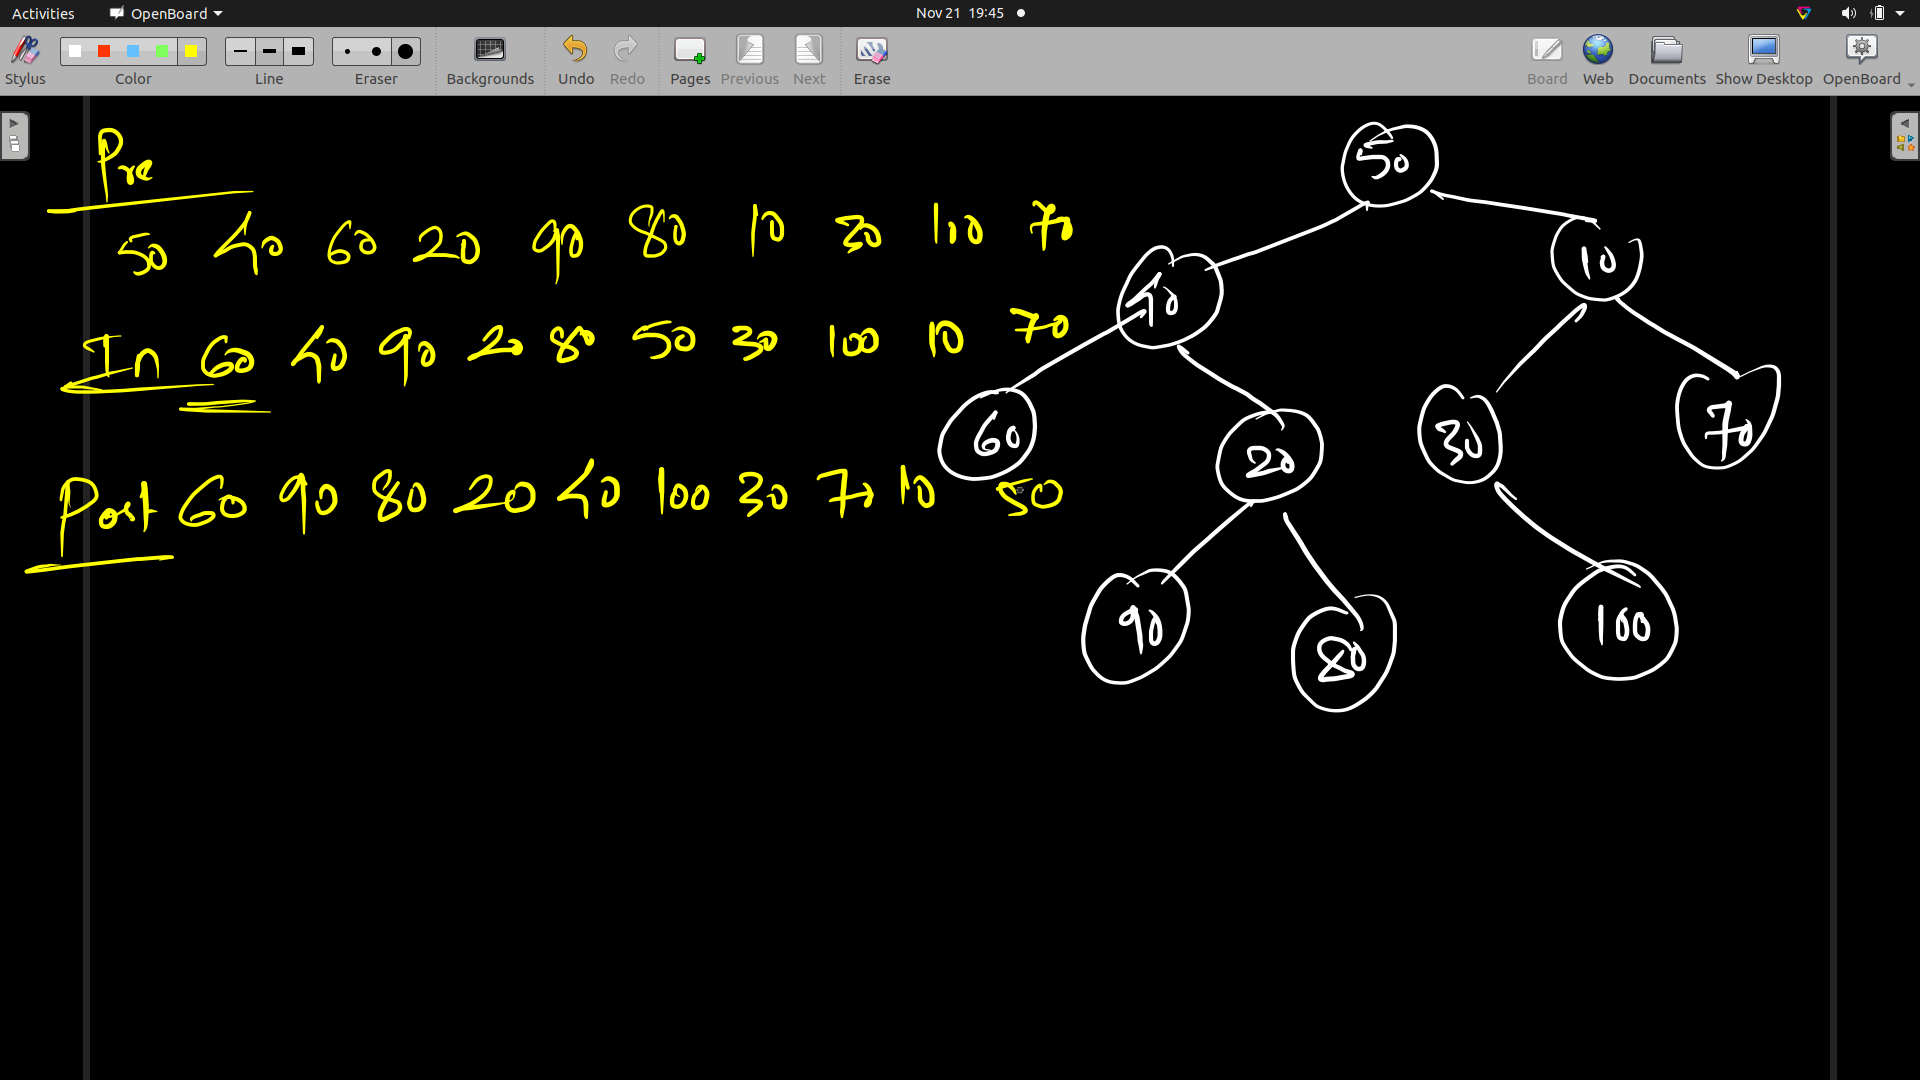 Activities OpenBoard Nov 21 19:45
Stylus Color Line Eraser Backgrounds Undo Redo Pages Previous Next Erase Board Web Documents Show Desktop OpenBoard
Pre
50 40 60 20 90 80 10 30 100 70
In 60 40 90 20 80 50 30 100 10 70
Post 60 90 80 20 40 100 30 70 10 50
50
40 10
60 20 30 70
90 80 100